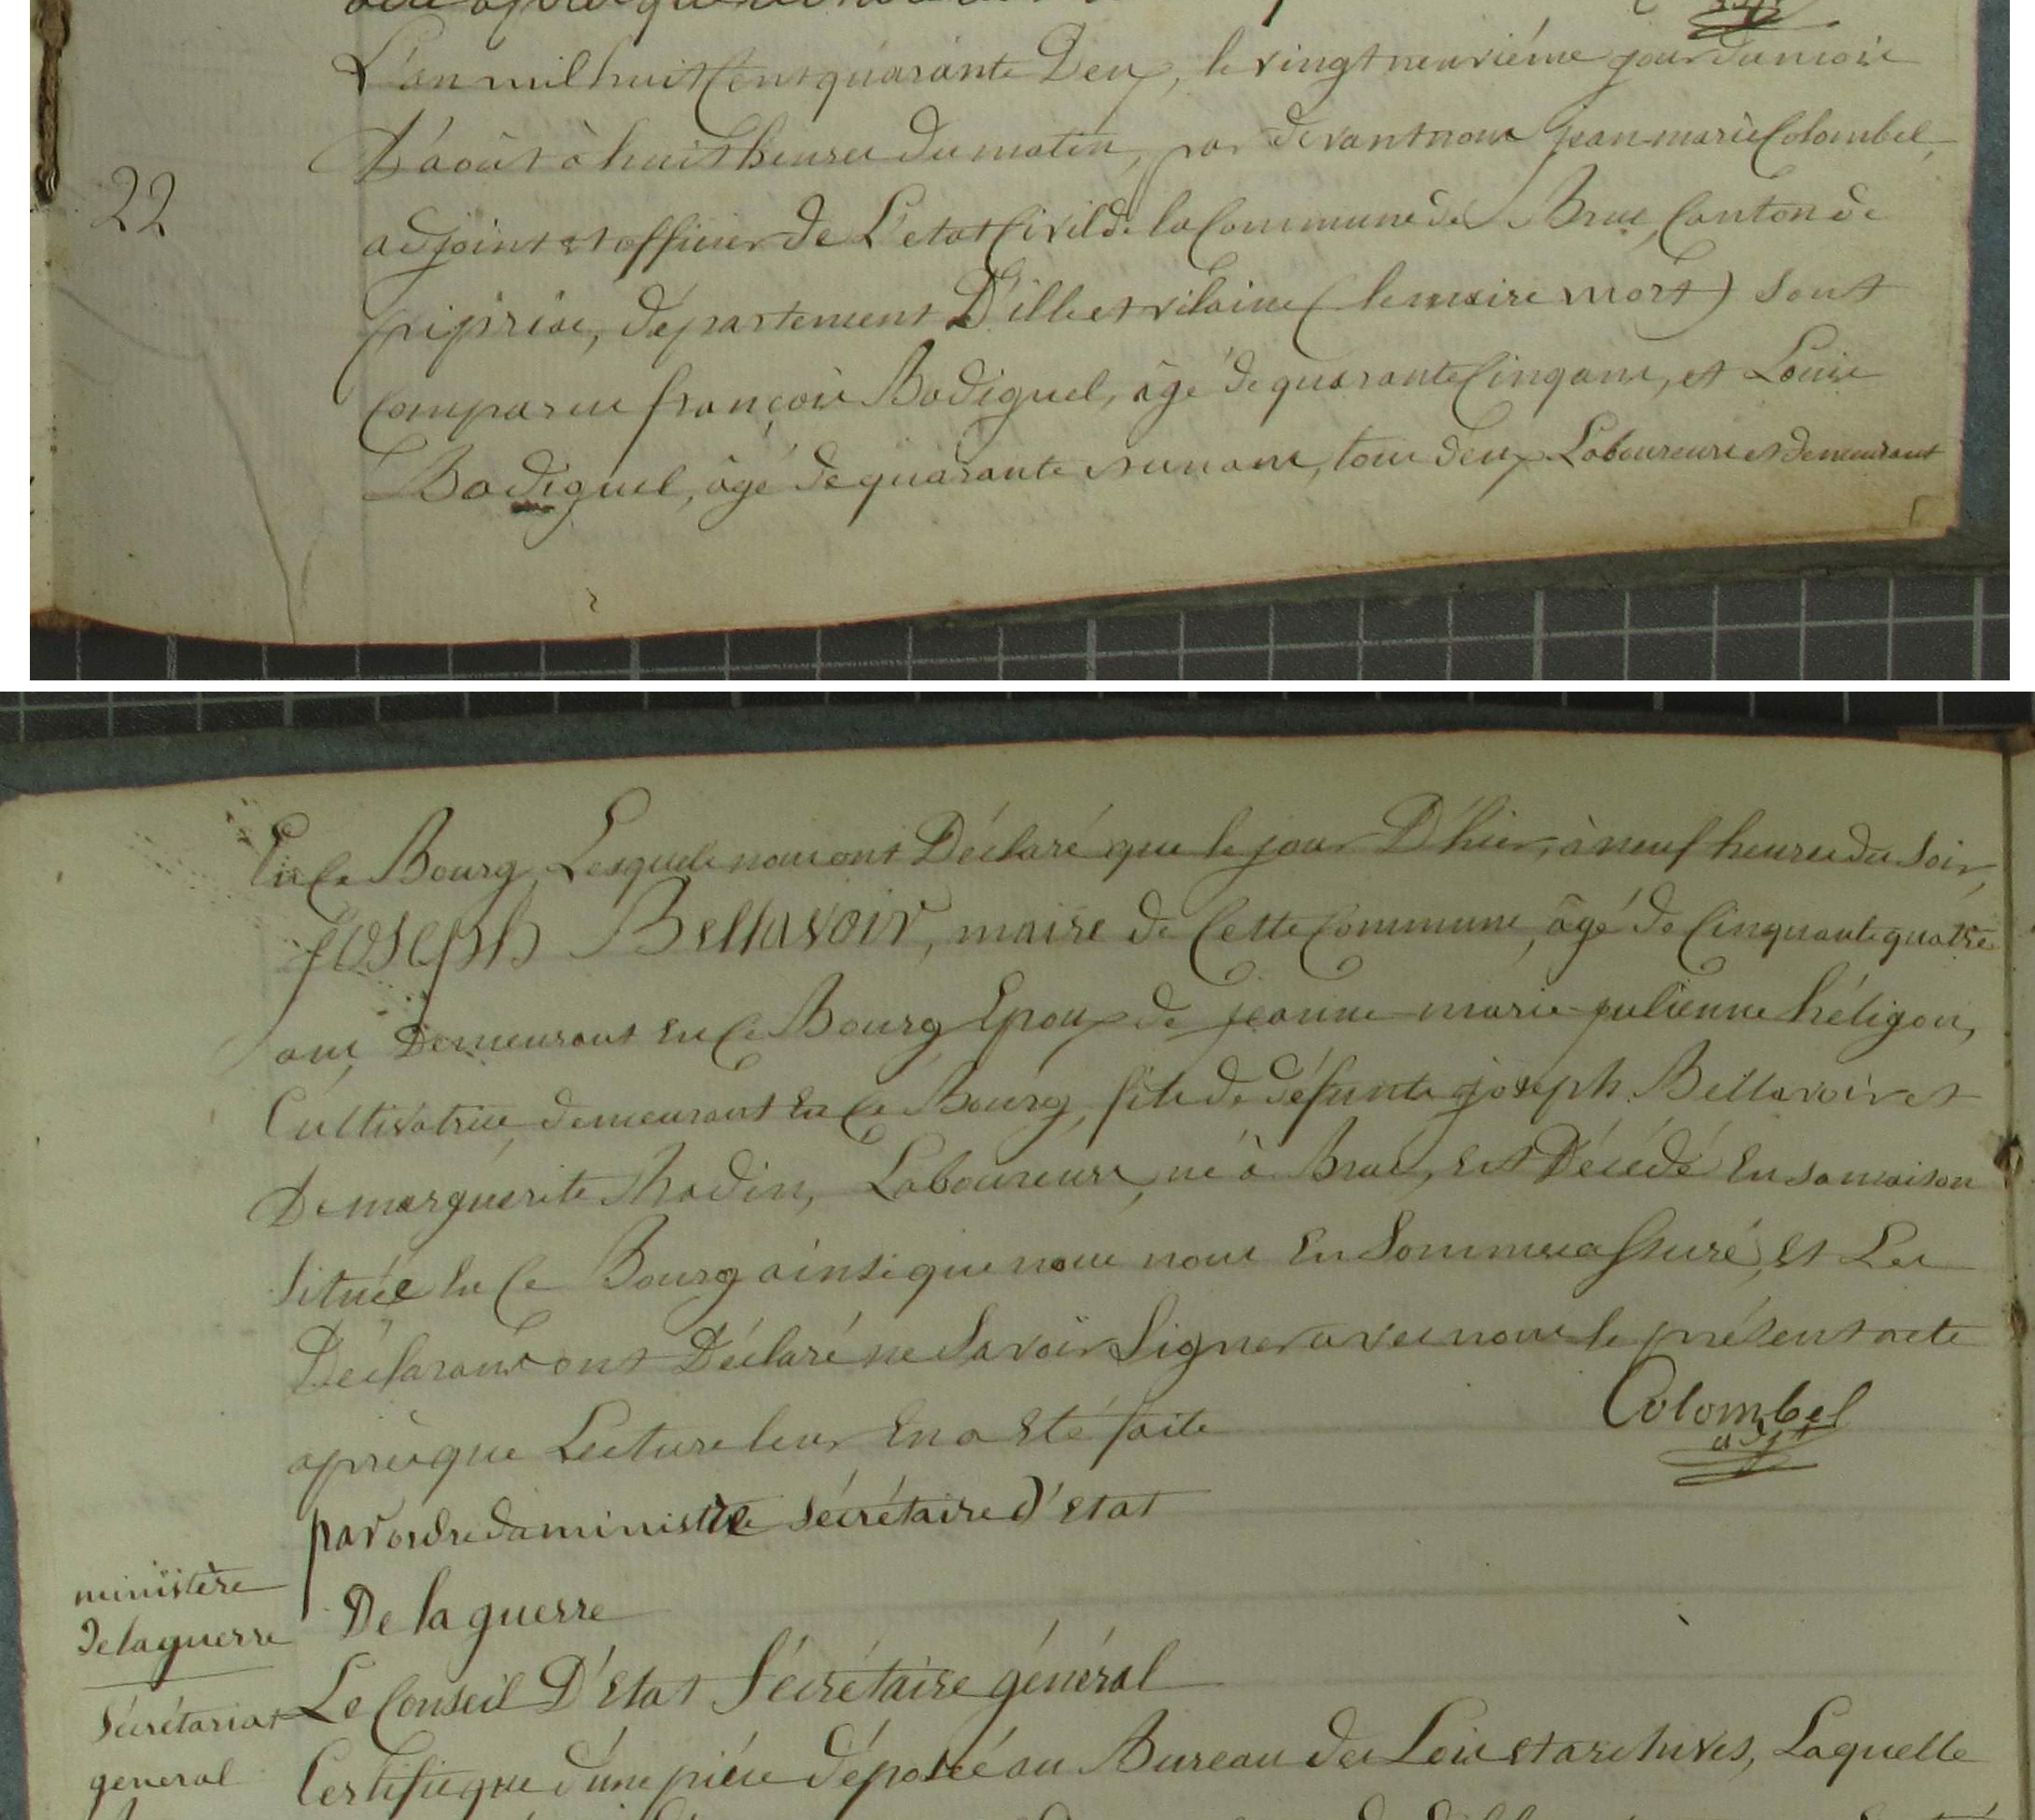 L'an mil huit Cent quarante Deux, le vingt neuvième jour du mois
D'août à huit heures du matin, par devant nous jean-marie Colombel,
adjoint et officier de L'etat Civil de la Commune de Bruc, Canton de
pipriac, département D'ille et vilaine (le maire mort) sont
Comparus françois Bodiguel, âgé de quarante Cinq ans, et Louis
22
Bodiguel, âgé de quarante et un ans, tous deux Laboureurs et demeurant
En Ce Bourg, Lesquels nous ont Déclaré que le jour D'hier, à neuf heures du soir,
joseph Bellavoir, maire de Cette Commune, âgé de Cinquante quatre
ans, Demeurant en Ce Bourg Epoux de jeanne-marie-julienne héligon,
Cultivatrice demeurant en Ce Bourg, fils de défunts joseph Bellavoir et
De marguérite Thodin, Laboureurs, né à Bruc, est Décédé En sa maison
située En Ce Bourg ainsi que nous nous En sommes assuré, et Les
Déclarans ont Déclaré ne savoir signer avec nous le présent acte
après que Lecture leur En a été faite
Colombel
adjt
par ordre du ministre sécrétaire d'etat
De la guerre
ministère
De la guerre
Sécrétariat
general
Le Conseil D'Etat Sécrétaire général
Certifie que d'une pièce déposée au Bureau des Lois et archives, Laquelle